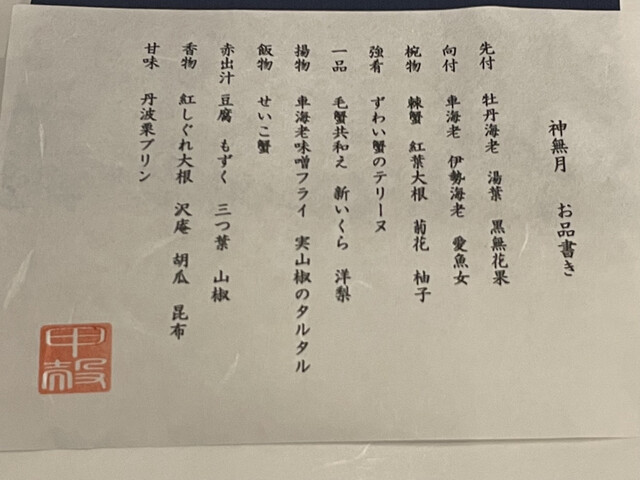 神無月　お品書き
先付　牡丹海老　湯葉　黒無花果
向付　車海老　伊勢海老　愛魚女
椀物　棘蟹　紅葉大根　菊花　柚子
強肴　ずわい蟹のテリーヌ
一品　毛蟹共和え　新いくら　洋梨
揚物　車海老味噌フライ　実山椒のタルタル
飯物　せいこ蟹
赤出汁　豆腐　もずく　三つ葉　山椒
香物　紅しぐれ大根　沢庵　胡瓜　昆布
甘味　丹波栗プリン
甲殻